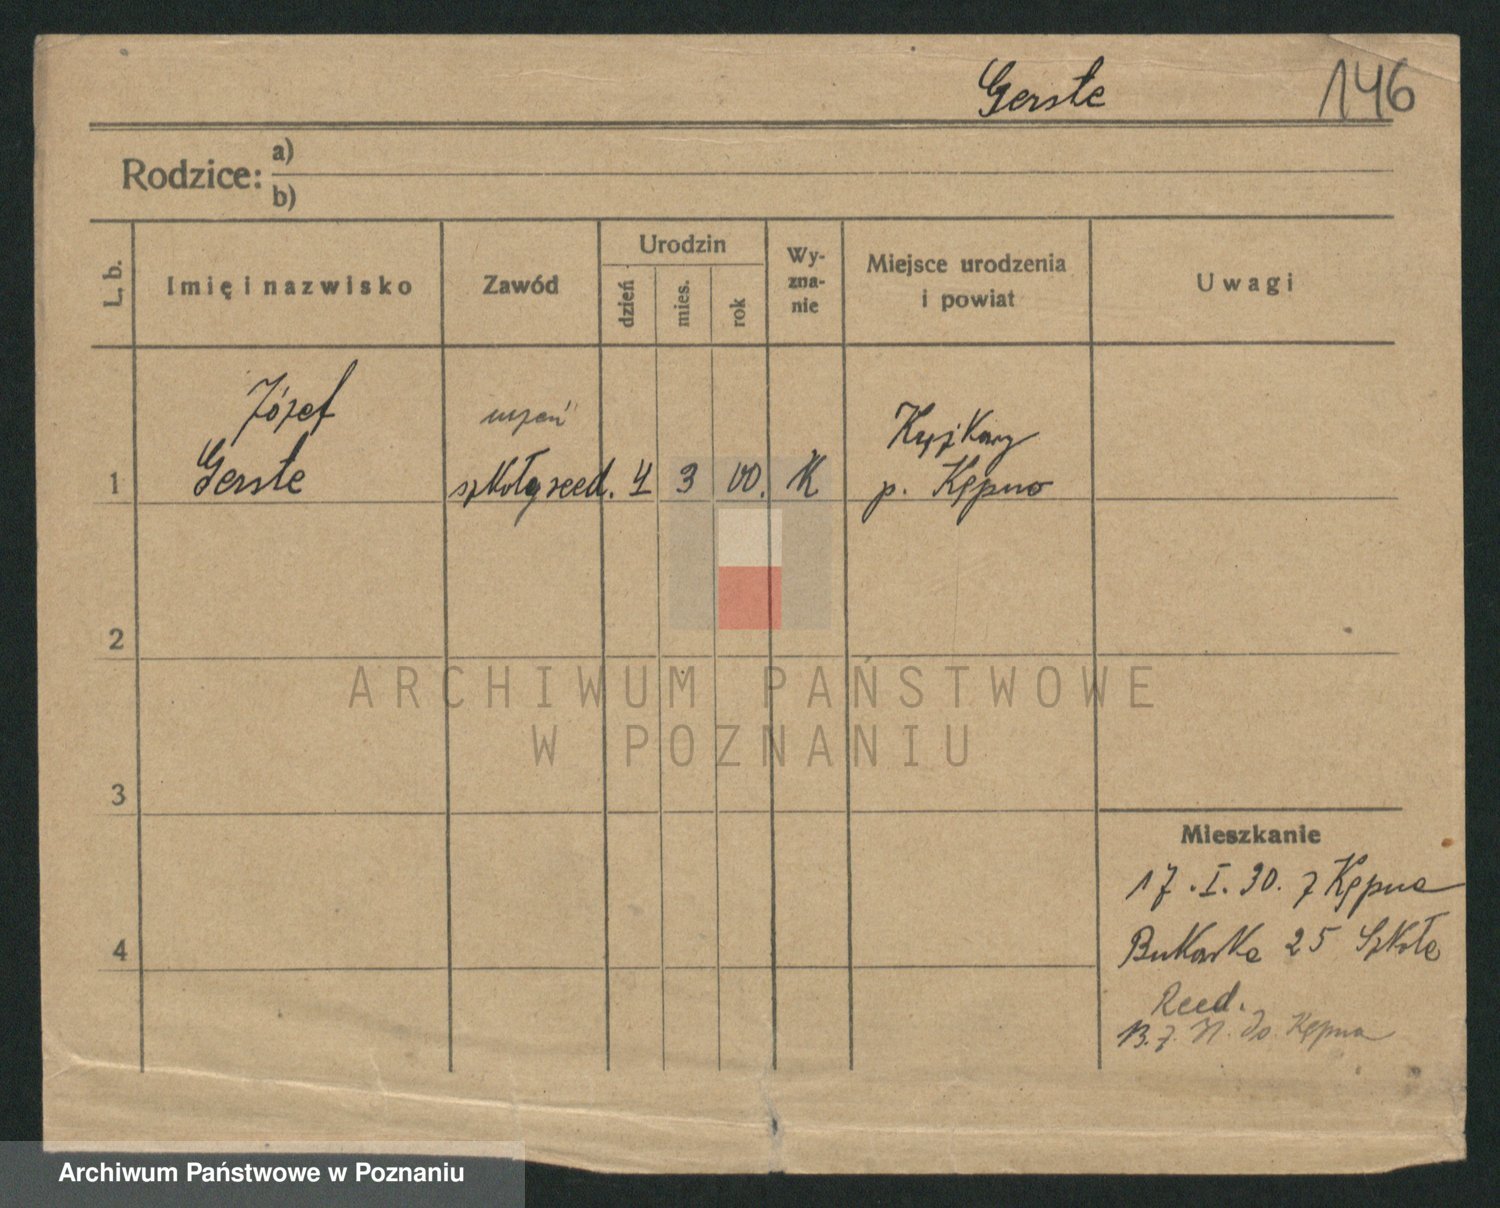 Gerste 146
Rodzice: a)
b)
L. b. Imię i nazwisko Zawód Urodzin dzień mies. rok Wy-zna-nie Miejsce urodzenia i powiat Uwagi
Józef uczeń
1 Gerste szkoły reed. 4 3 00. K p. Kępno
2
ARCHIWUM PAŃSTWOWE
W POZNANIU
3
Mieszkanie
17.I.30. z Kępna
4 Bukowska 25 Szkoła
Reed.
do Kępna
Archiwum Państwowe w Poznaniu